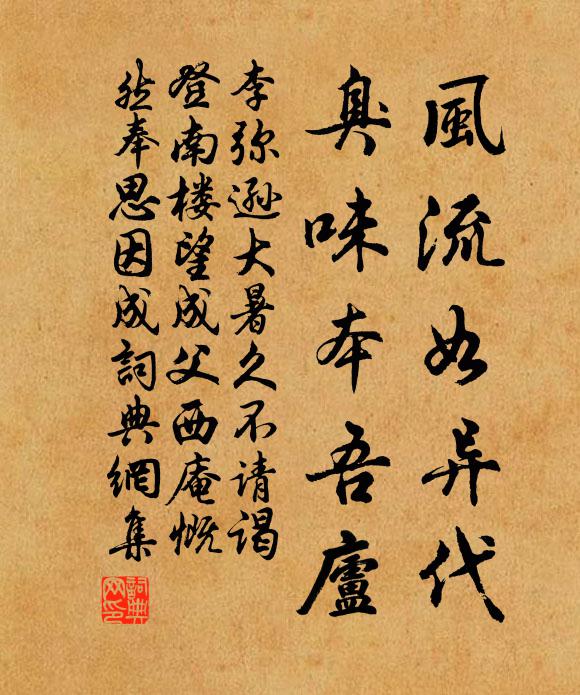 風流如异代
臭味本吾廬
李弥遜大暑久不请谒
登南楼望成父西庵慨
然奉思因成詞典網集
詞典网印